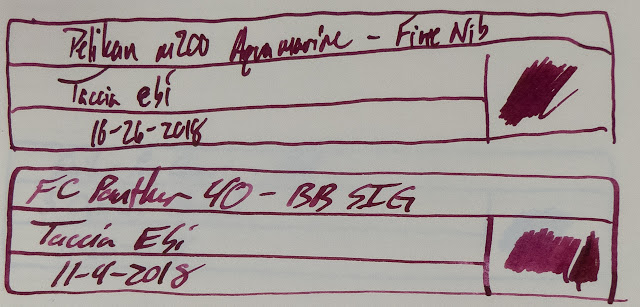 Pelikan m200 Aquamarine - Fine Nib
Taccia ebi
16-26-2018
FC Panther 40 - BB SIG
Taccia Ebi
11-4-2018